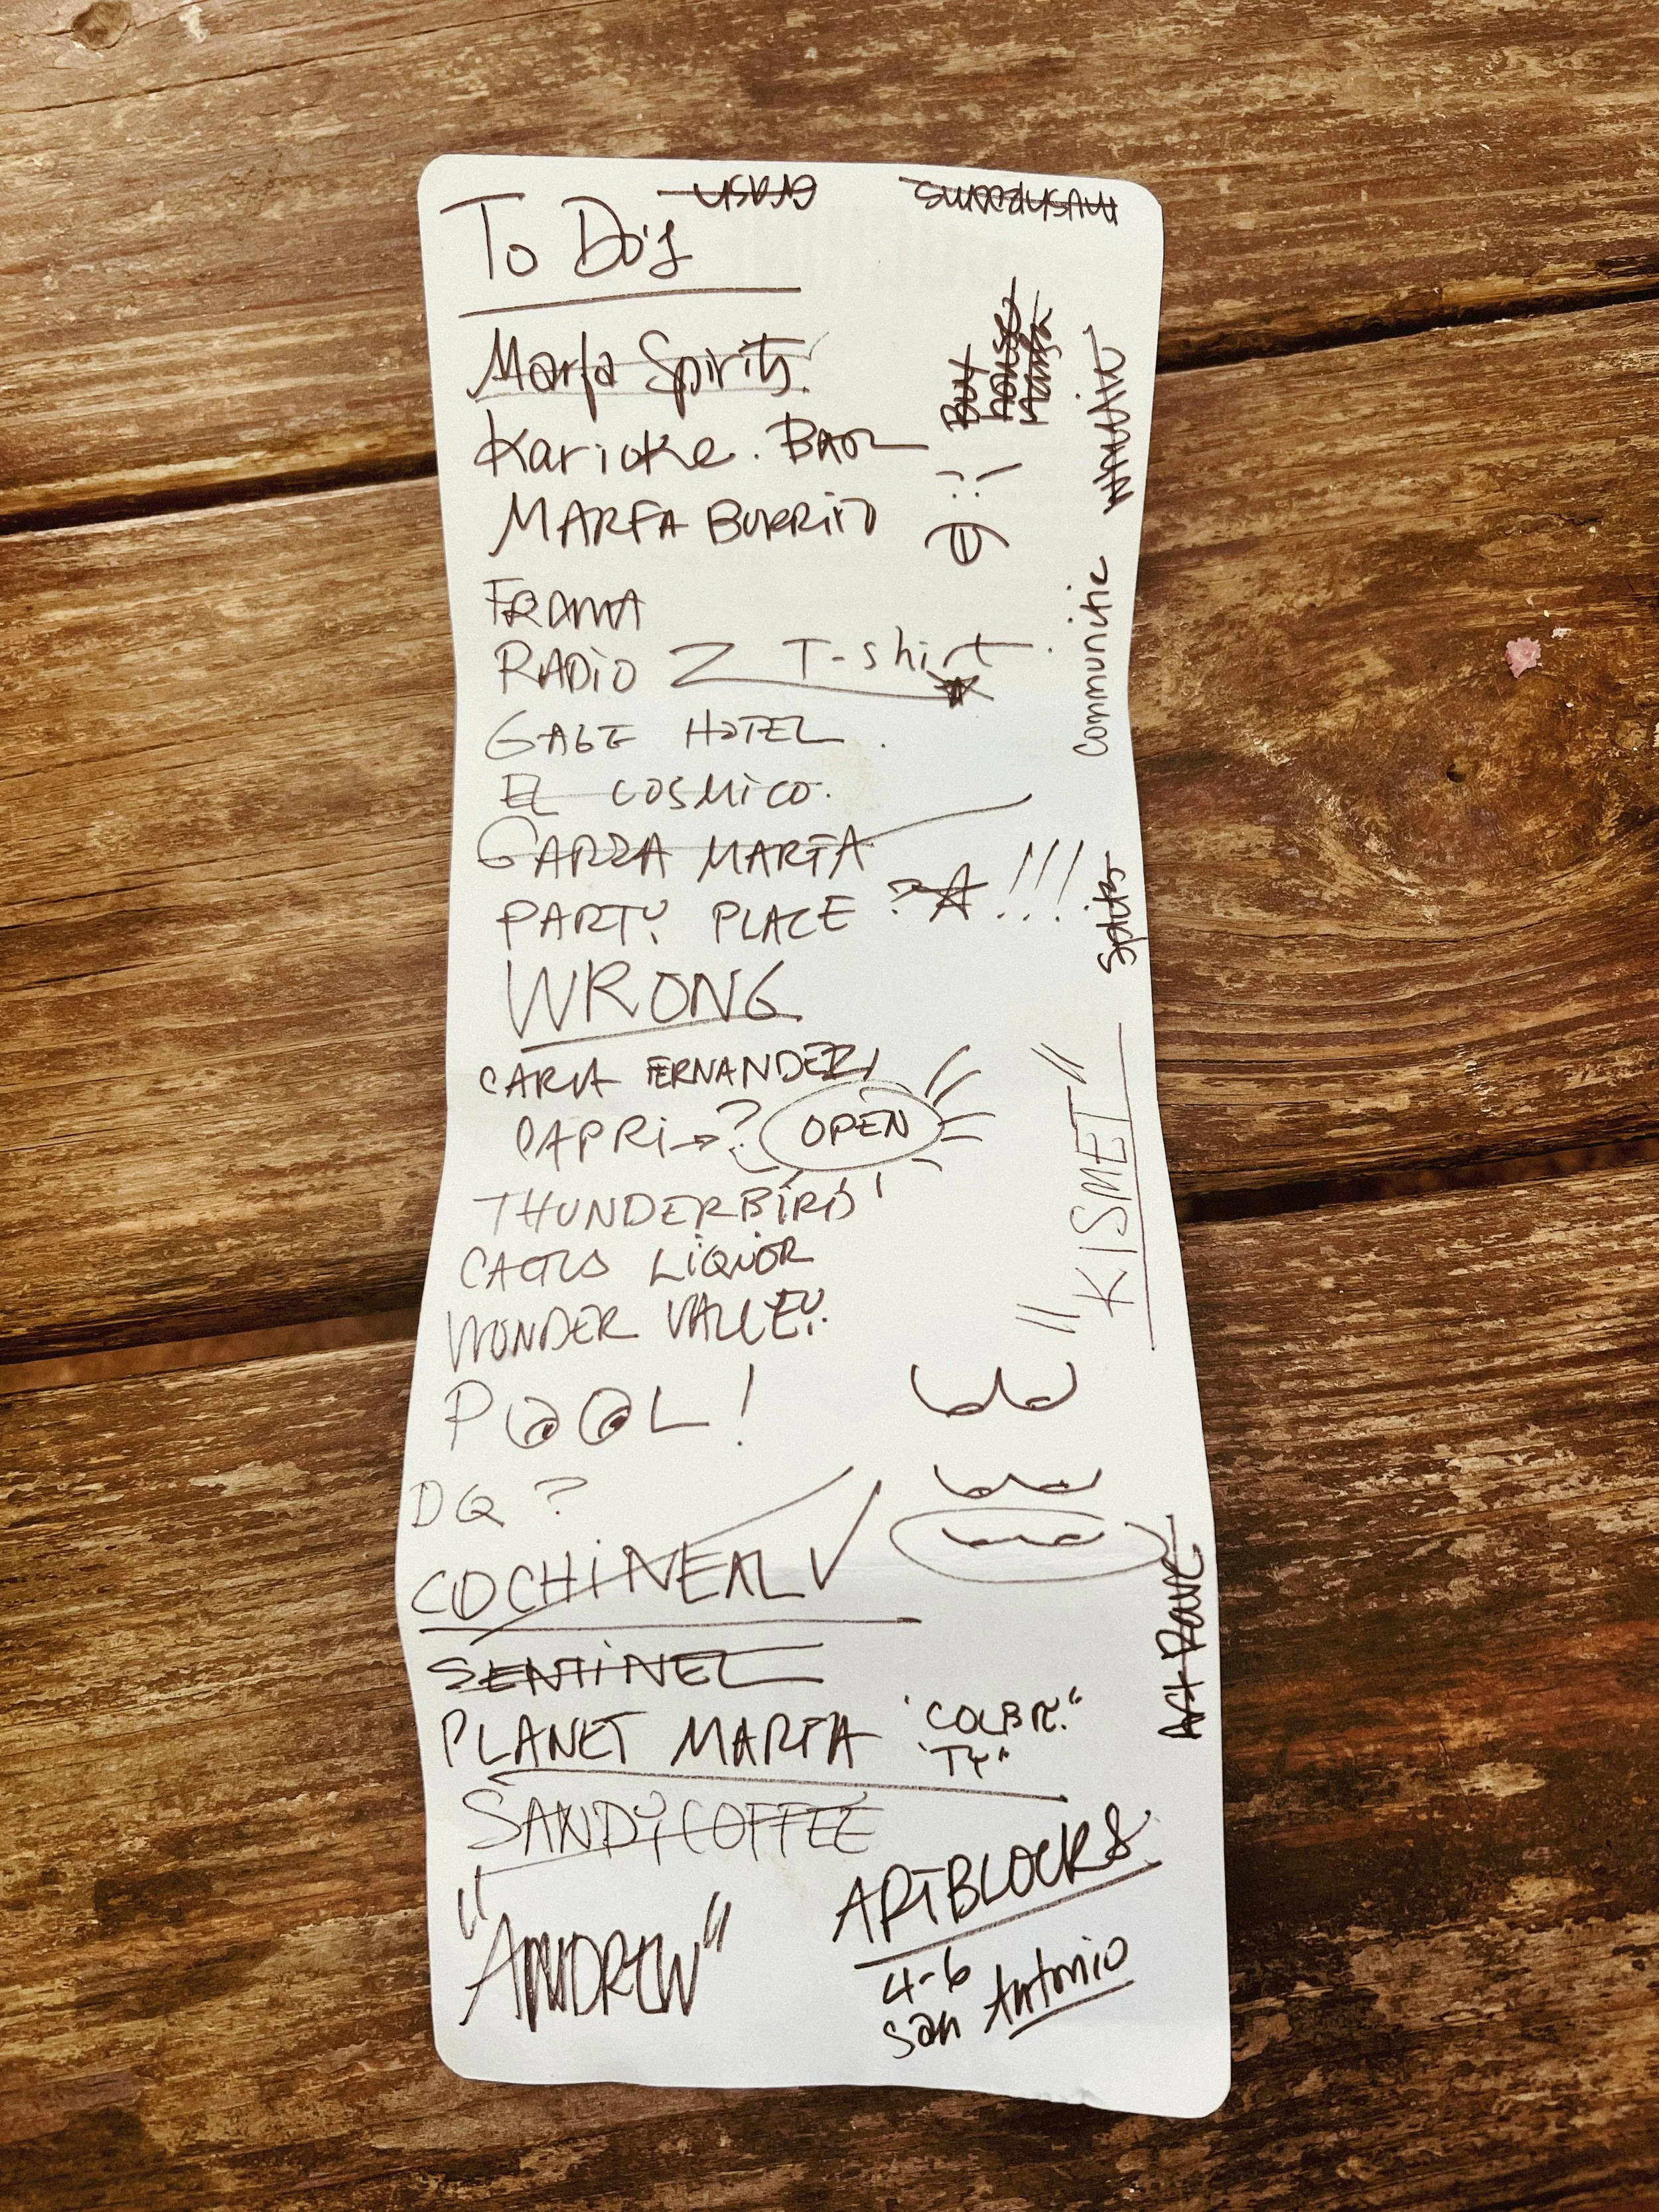 To Do's
Marfa Spirits
Karioke. BAR
MARFA BURRITO
FRAMA
RADiO Z T-shirt
GAGE HOTEL.
EL COSMiCO.
GARZA MARFA
PARTY PLACE ? !!!
WRONG
CARLA FERNANDEZ
CAPRi → ? OPEN
THUNDERBiRD
CACTUS LiQUOR
WONDER VALLEY.
POOL!
DQ?
COCHiNEAL ✓
SENTiNEL
PLANET MARFA
"TY"
SANDY COFFEE
"ANDREW"
ARTBLOCKS
4-6
San Antonio
mushrooms
Buy
house
Marfa
Communitie
Spirits
"KISMET"
Art Rave